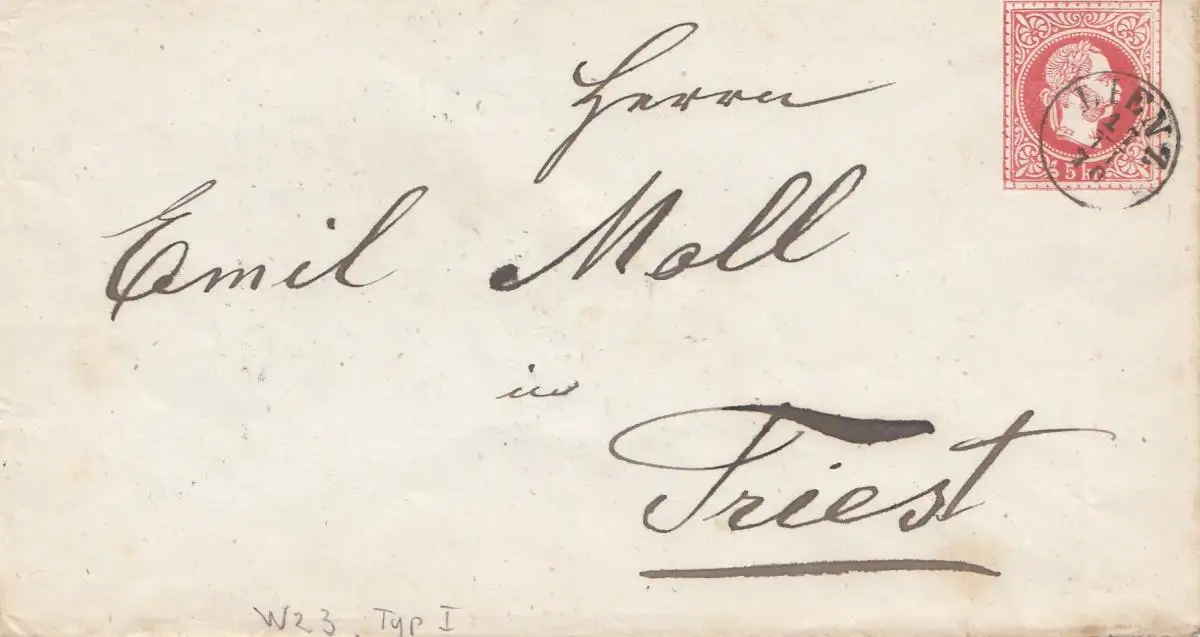 Herrn
LIENZ
5 kr
Emil Moll
in
Triest
W23 Typ I